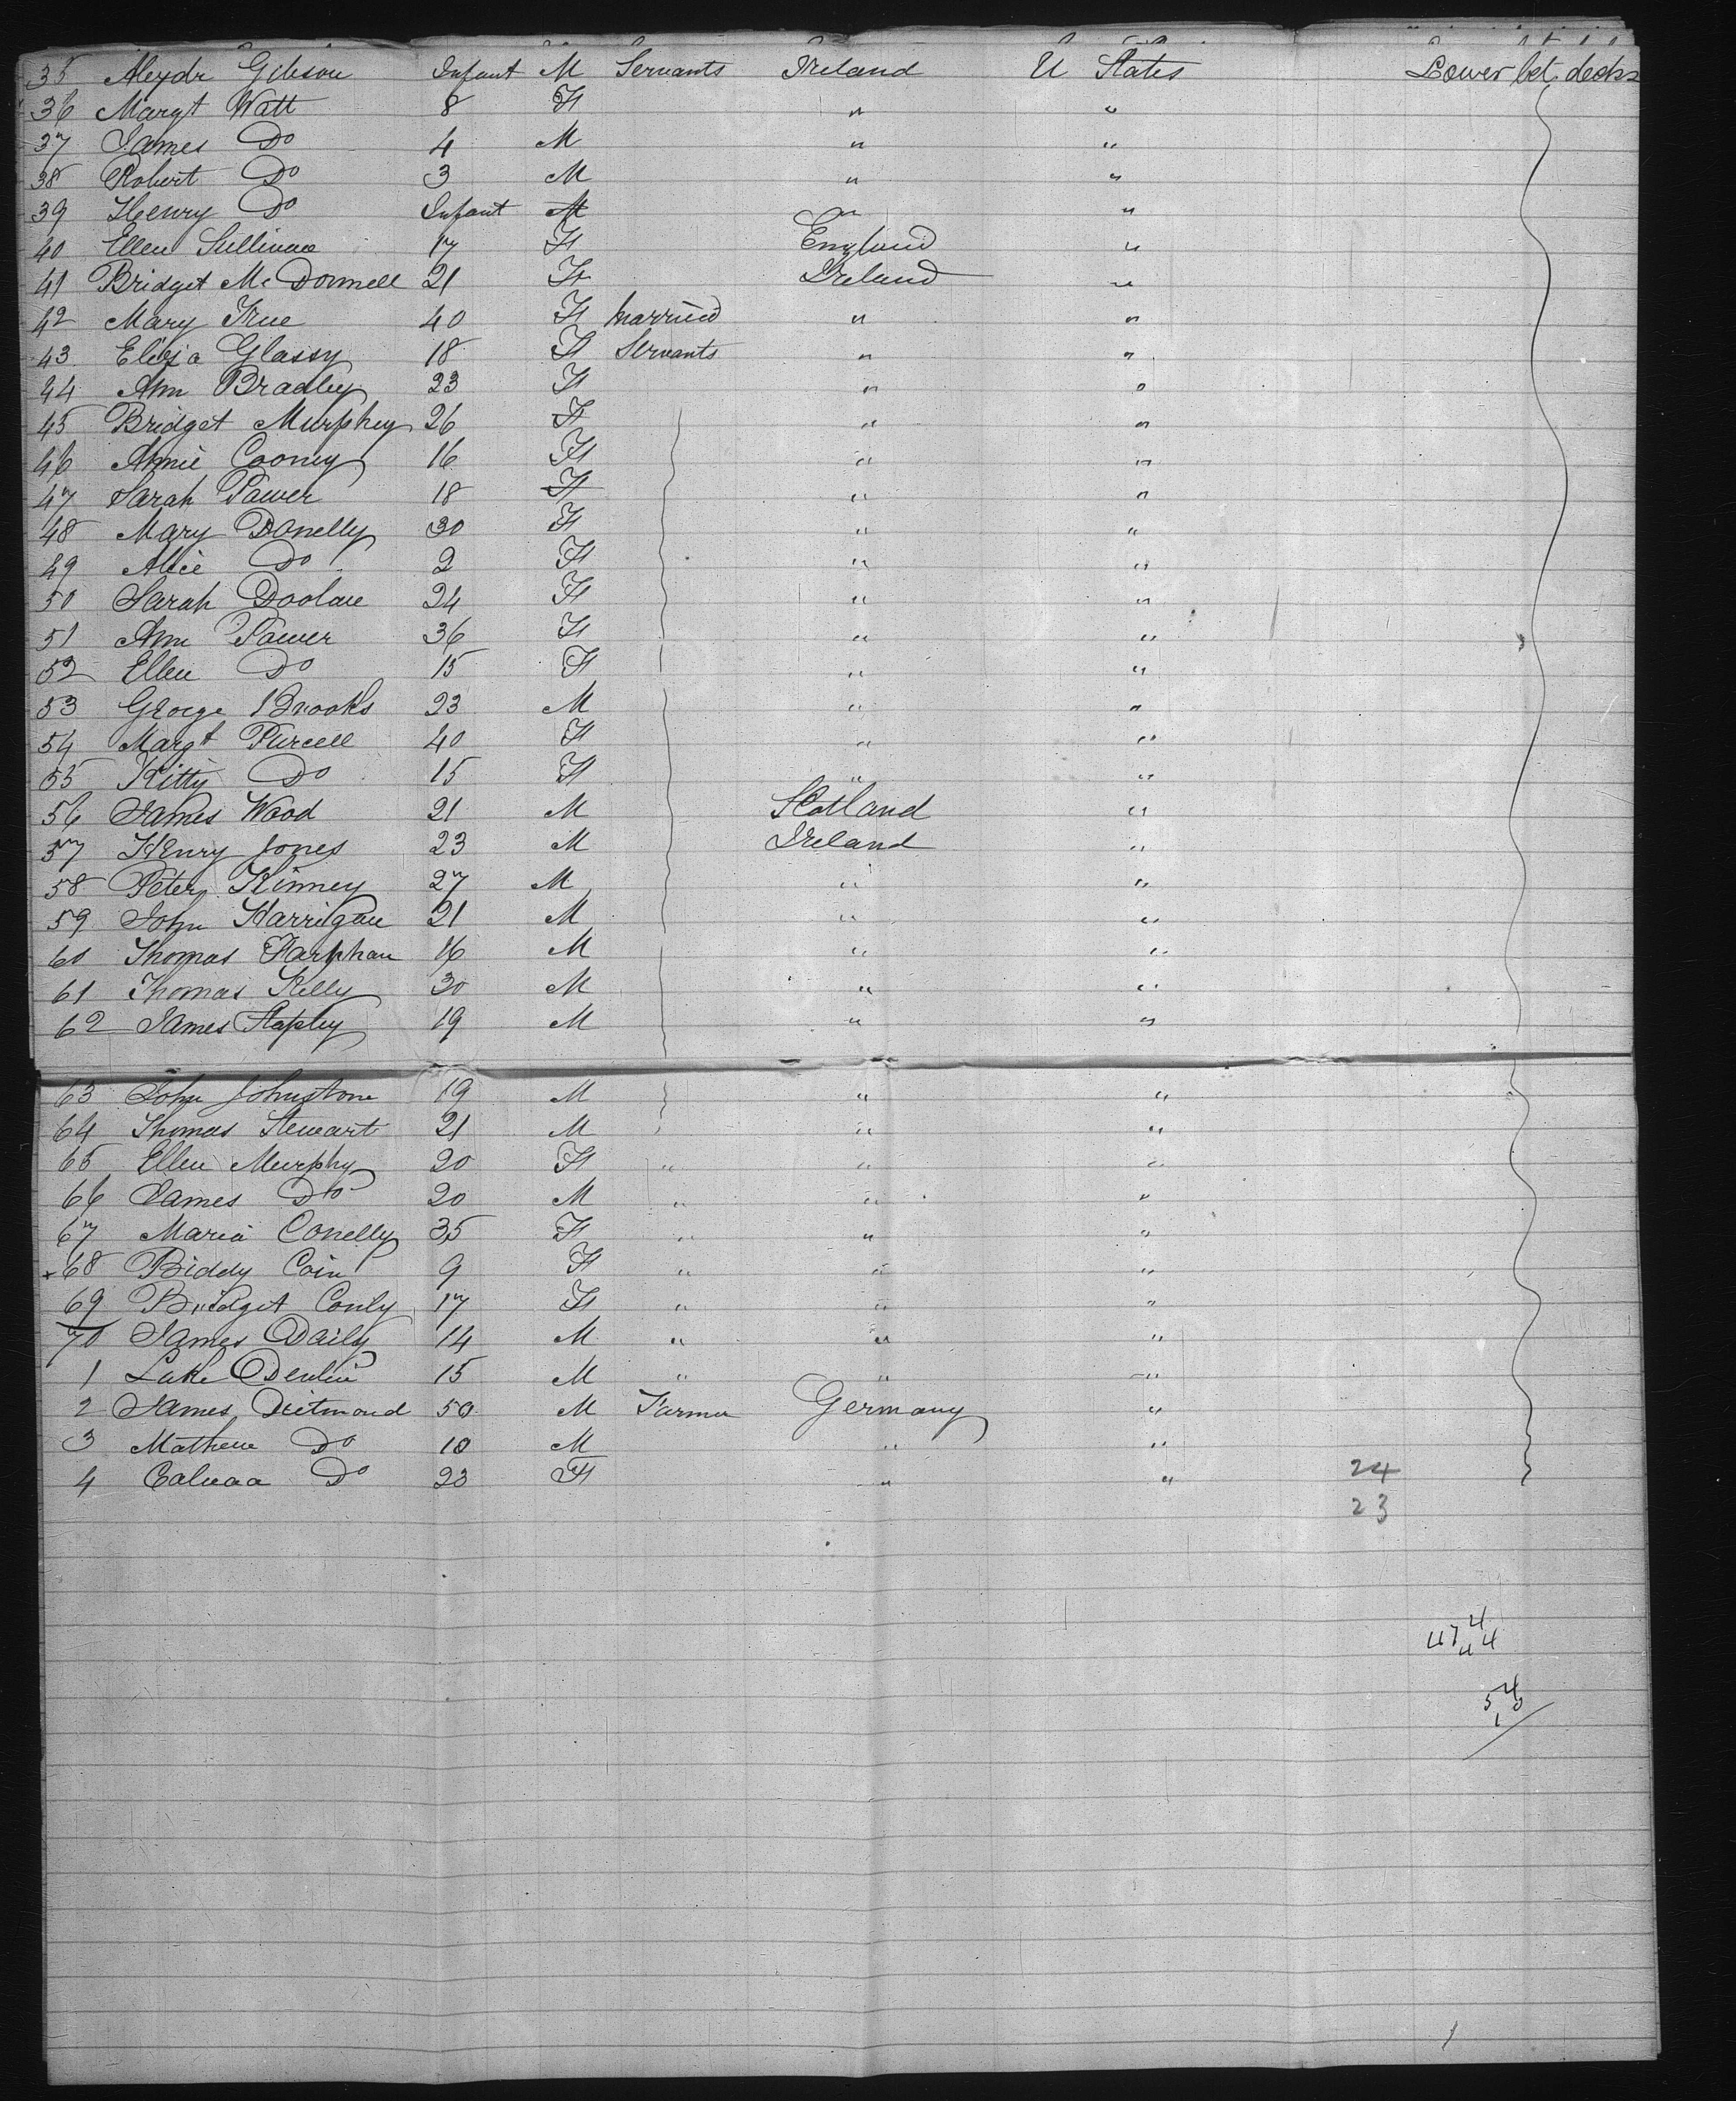 35 Alexdr Gibson Infant M Servants Ireland U States Lower bet. decks
36 Margt Watt 8 F " "
37 James Do 4 M " "
38 Robert Do 3 M " "
39 Henry Do Infant M " "
40 Ellen Sullivan 17 F England "
41 Bridget Mc Donnell 21 F Ireland "
42 Mary True 40 F Married " "
43 Eliza Glassy 18 F Servants " "
44 Ann Bradley 23 F " "
45 Bridget Murphey 26 F " "
46 Annie Cooney 16 F " "
47 Sarah Power 18 F " "
48 Mary Donelly 30 F " "
49 Alice Do 2 F " "
50 Sarah Doolan 24 F " "
51 Ann Power 36 F " "
52 Ellen Do 15 F " "
53 George Brooks 23 M " "
54 Margt Purcell 40 F " "
55 Kitty Do 15 F " "
56 James Wood 21 M Scotland "
57 Henry Jones 23 M Ireland "
58 Peter Kinney 27 M " "
59 John Harrigan 21 M " "
60 Thomas 16 M " "
61 Thomas Kelly 30 M " "
62 James Stapley 19 M " "
63 John Johnstone 19 M " "
64 Thomas Stewart 21 M " "
65 Ellen Murphy 20 F " " "
66 James Do 20 M " " "
67 Maria Conelly 35 F " " "
68 Biddy Coin 9 F " " "
69 Bridget Conly 17 F " " "
70 James Daily 14 M " " "
1 Luke Devlin 15 M " " "
2 James Dietmond 50 M Farmer Germany "
3 Mathew Do 10 M " "
4 Do 23 F " " 24
23